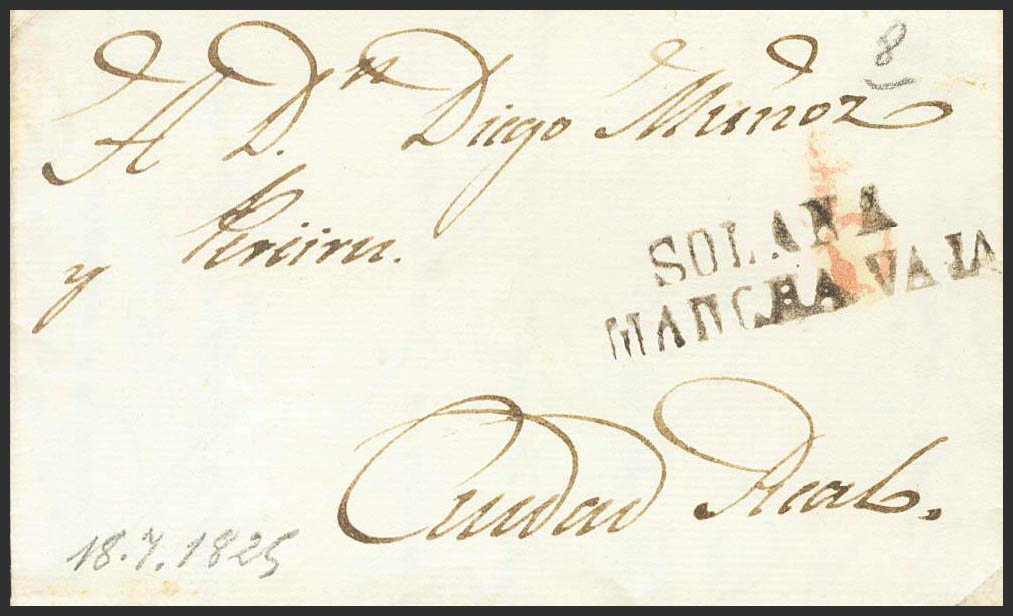 8
A Dn. Diego Muñoz
y Pereira.
SOLANA
MANCHA VAJA
Ciudad Real.
18.7.1825